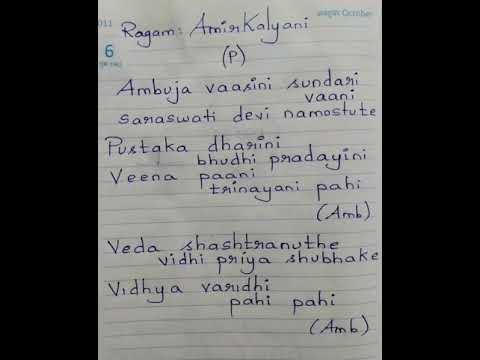 011
October
6
Ragam: AmirKalyani
(P)
Ambuja vaasini sundari
vaani
saraswati devi namostute
Pustaka dharini
bhudhi pradayini
Veena paani
trinayani pahi
(Amb)
Veda shashtranuthe
vidhi priya shubhake
Vidhya varidhi
pahi pahi
(Amb)